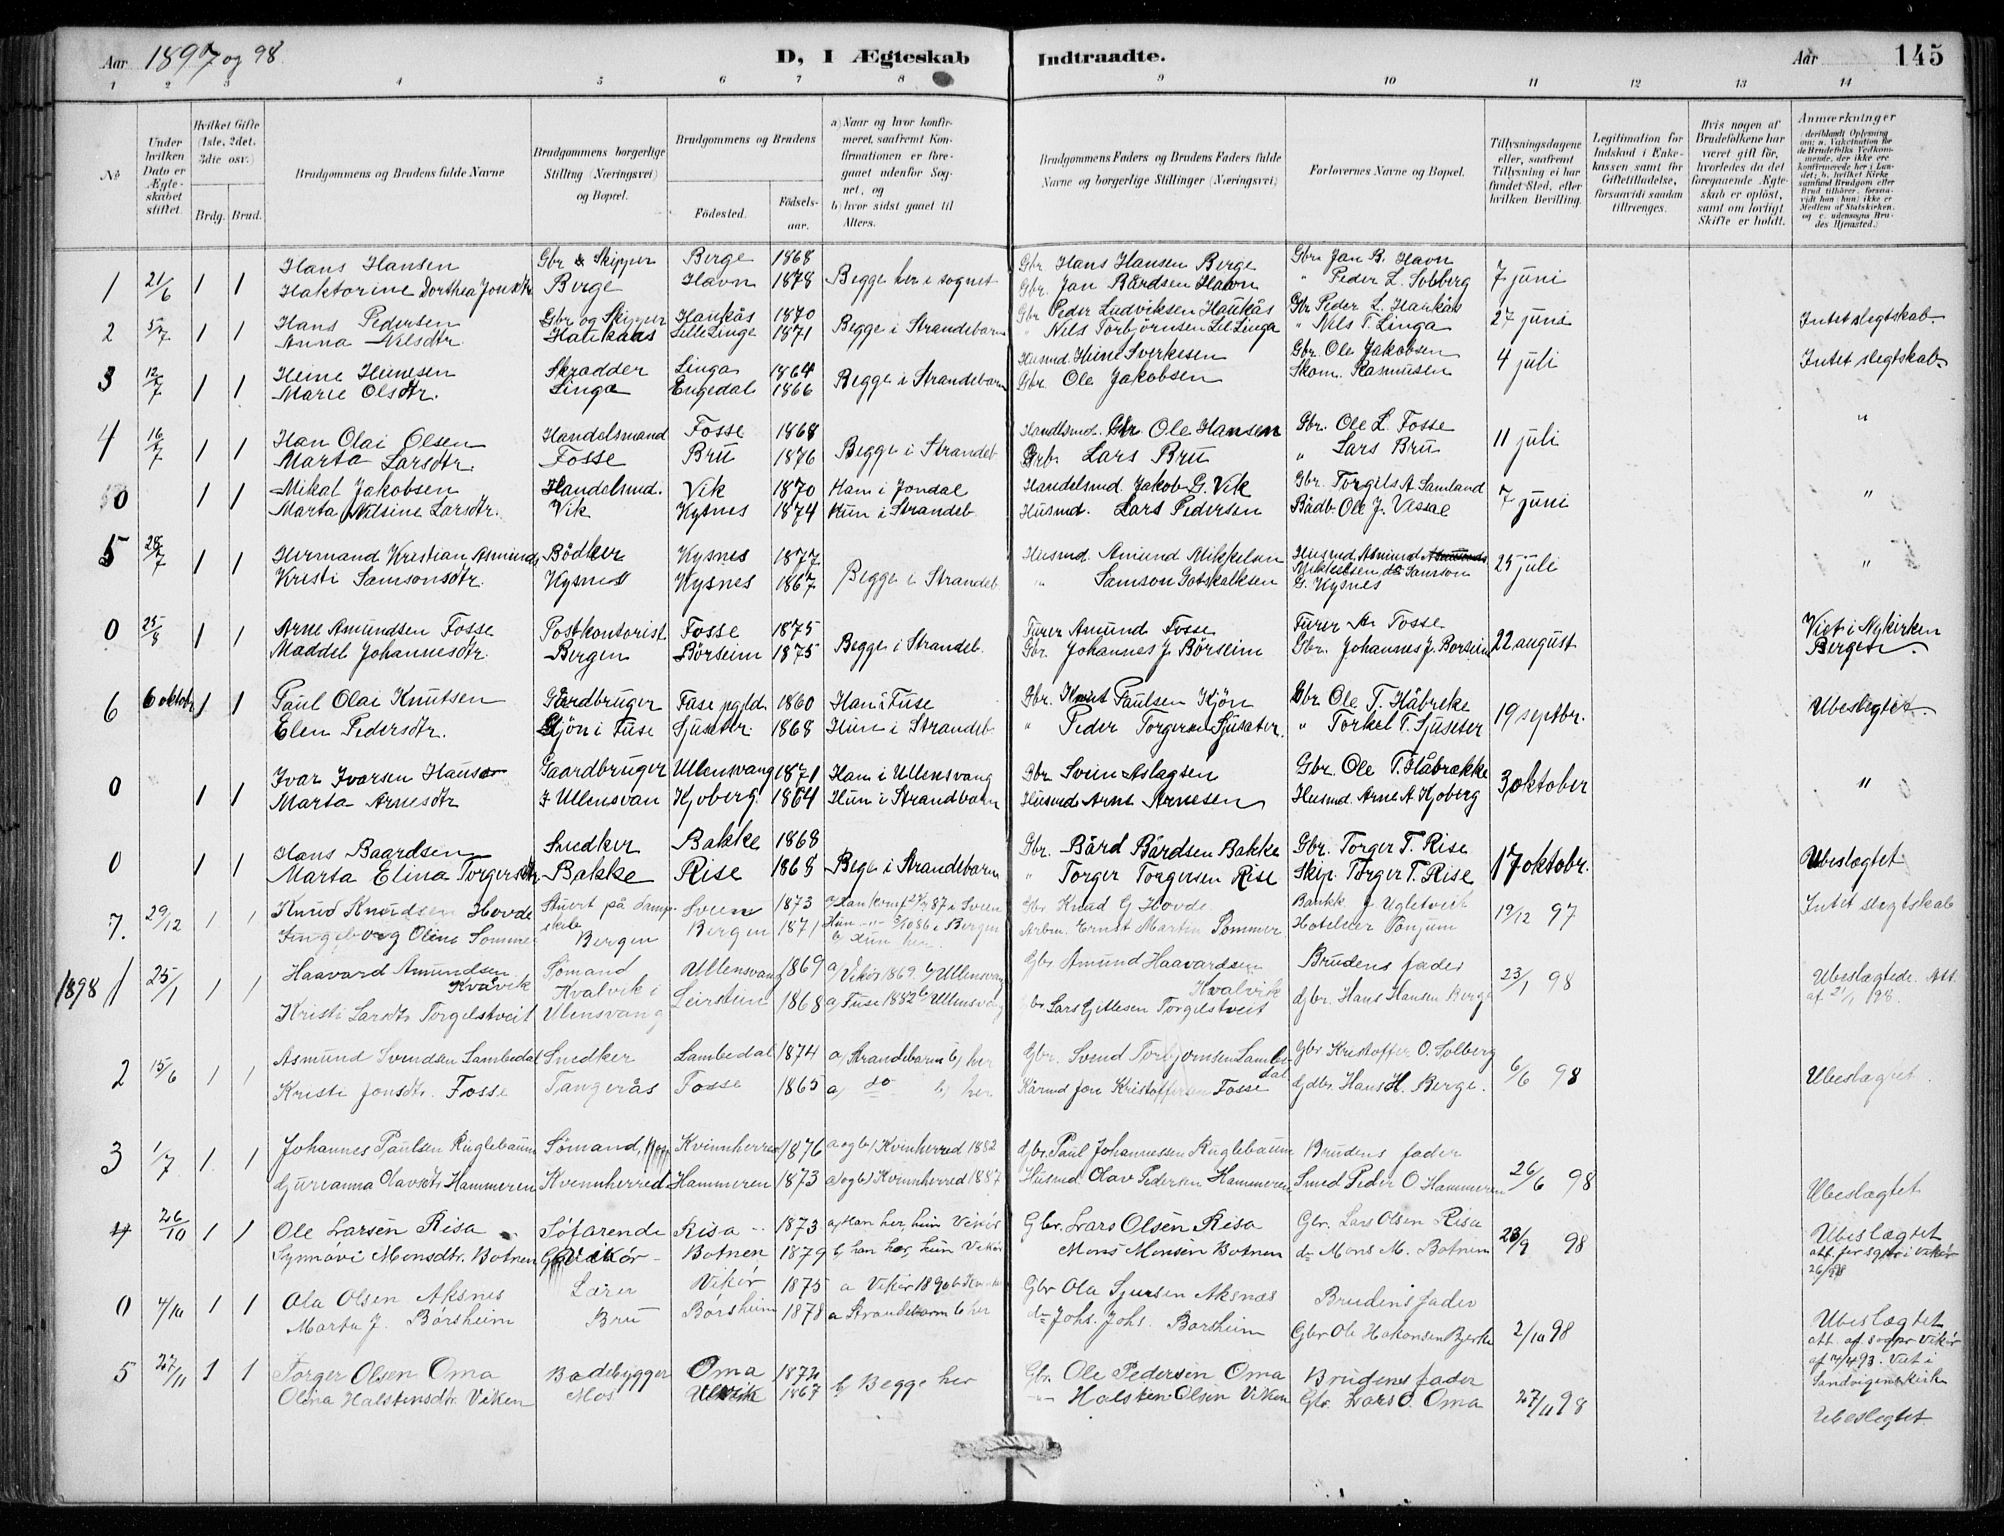 Aar 1897 og 98.
D, I Ægteskab Indtraadte.
Aar 145
1 2 3 4 5 6 7 8 9 10 11 12 13 14
No
Under hvilken Dato er Ægteskabet stiftet.
Hvilket Gifte (1ste, 2det, 3die osv.)
Brdg. Brud.
Brudgommens og Brudens fulde Navne
Brudgommens borgerlige Stilling (Næringsvei) og Bopæl.
Brudgommens og Brudens
Fødested. Fødselsaar.
a) Naar og hvor konfirmeret, saafremt Konfirmationen er foregaaet udenfor Sognet, og
b) hvor sidst gaaet til Alters.
Brudgommens Faders og Brudens Faders fulde Navne og borgerlige Stillinger (Næringsvei)
Forlovernes Navne og Bopæl.
Tillysningsdagene eller, saafremt Tillysning ei har fundet Sted, efter hvilken Bevilling.
Legitimation for Indskud i Enkekassen samt for Giftetilladelse, forsaavidt saadan tiltrænges.
Hvis nogen af Brudefolkene har været gift før, hvorledes da det foregaaende Ægteskab er opløst, samt om lovligt Skifte er holdt.
Anmærkninger (deriblandt Oplysning om: a. Vakcination for de Brudefolks Vedkommende, der ikke ere konfirmerede her i Landet; b. hvilket Kirkesamfund Brudgom eller Brud tilhører, forsaavidt han (hun) ikke er Medlem af Statskirken, og c. udensogns Brudes Hjemsted.)
1 21/6 1 1 Hans Hansen Gbr & Skipper Berge 1868 Begge her i sognet Gbr Hans Hansen Berge Gbr. Jan B. Havn 7 juni
Haktorine Dorthea Jonsdtr Berge Havn 1878 Gbr. Jan Bårdsen Havn " Peder L. Solberg
2 5/7 1 1 Hans Pedersen Gbr og Skipper Haukås 1870 Begge i Strandebarm Gbr Peder Ludviksen Haukås Gbr Peder L. Haukås 27 juni Intet slegtskab
Anna Nilsdtr. Haukaas Lille Linge 1871 " Nils Torbjørnsen Lil Linga " Nils T. Linga
3 12/7 1 1 Heine Heinesen Skrædder Linga 1864 Begge i Strandebarm Husmd. Heine Sverkesen Gbr. Ole Jakobsen 4 juli Intet slegtskab
Marie Olsdtr. Linga Engedal 1866 Gbr. Ole Jakobsen Skom. Rasmusen
4 16/7 1 1 Han Olai Olsen Handelsmand Fosse 1868 Begge i Strandeb Handlsmd. Ole Hansen Gbr. Ole L. Fosse 11 juli "
Marta Larsdtr. Fosse Bru 1876 Lars Bru " Lars Bru
0 1 1 Mikal Jakobsen Handelsmd. Vik 1870 Han i Jondal Handelsmd Jakob G. Vik Gbr. Torgils A Samland 7 juni "
Marta Nilsine Larsdtr. Vik Kysnes 1874 Hun i Strandeb. Husmd. Lars Pedersen Bådb. Ole J. Vassal
5 28/7 1 1 Hermand Kristian Asmunds Bödker Kysnes 1877 Begge i Strandeb. Husmd. Amund Mikkelsen Husmd. Asmund 25 juli "
Kristi Samsonsdtr. Kysnes Kysnes 1867 " Samson Gotskalksen Mikkelsen, do Samson G. Kysnes
0 25/8 1 1 Arne Amundsen Fosse Postkontorist Fosse 1875 Begge i Strandeb. Furer Amund Fosse Furer Am Fosse 22 august Viet i Nykirken
Maddel Johannesdtr. Bergen Börseim 1875 Gbr. Johannes J. Börseim Gbr. Johannes J. Börseim Bergen.
6 6 oktobr 1 1 Paul Olai Knutsen Gårdbruger Fuse pgld. 1860 Han i Fuse Gbr. Knut Paulsen Kjön Gbr Ole T. Håbrekke 19 septbr. Ubeslegtet.
Elen Pedersdtr. Kjön i Fuse Sjuseter 1868 Hun i Strandeb " Peder Torgersen Sjuseter. " Torkel T. Sjuseter
0 1 1 Ivar Ivarsen Hauso Gaardbruger Ullensvang 1871 Han i Ullensvang Gbr. Svein Aslagsen Gbr. Ole T. Håbrekke 3 oktober "
Marta Arnesdtr I Ullensvan Kjoberg. 1864 Hun i Strandbarm Husmd Arne Arnesen Husmd. Arne A. Kjoberg
0 1 1 Hans Baardsen Snedker Bakke 1868 Bege i Strandebarm Gbr. Bård Bårdsen Bakke Gbr. Torger T. Rise 17 oktobr. Ubeslagtet
Marta Elina Torgersdtr Bakke Rise 1868 " Torger Torgersen Rise Skip. Torger T. Rise
7. 29/12 1 1 Knud Knudsen Hovde Stuert på dampskib Sveen 1873 Gbr. Knud G Hovde Bankk. J Ugletveit 19/12 97 Intet slegtskab
Ingeborg Oline Sommer Bergen Bergen 1871 b Hun her. Arbm. Ernst Martin Sommer Hoteleier Tönjum
1898 1 25/1 1 1 Haavard Amundsen Kvavik Sömand Ullensvang 1869 a/ Vikör 1869. b/ Ullensvang Gbr Amund Haavardsen Kvalvik Brudens fader 23/1 98 Ubeslagtede. Att. af 21/1 98.
Kristi Larsdtr Torgilstveit Kvalvik i Ullensvang Leirstein 1868 a/ Fuse 1882 b/ Ullensvang Gbr Lars Gitlesen Torgilstveit Gbr. Hans Hansen Berge
2 15/6 1 1 Asmund Svendsen Sambedal Snedker Sambedal 1874 a) Strandebarm b) her Gbr. Svend Torbjornsen Sambedal Gbr Kristoffer O. Solberg 6/6 98 Ubeslagtet
Kristi Jonsdtr. Fosse Tangerås Fosse 1865 a) do b) her Kårmd Jon Kristoffersen Fosse Gbr. Hans H. Berge.
3 1/7 1. 1 Johannes Paulsen Ruglebaum Sömand, Kvinnherred 1876 a og b) Kvinherred 1882 Gbr. Paul Johannessen Ruglebaum Brudens fader 26/6 98 Ubeslagtet
Gurianna Olavsdtr Hammeren Kvinnherred Hammeren 1873 a og b) Kvinnherred 1887 Husmd. Olav Pedersen Hammeren Smed Peder O Hammeren
4 26/10 1 1 Ole Larsen Risa Söfarende Risa 1873 a/ Han her, hun Vikör Gbr. Lars Olsen Risa Gbr. Lars Olsen Risa 23/9 98 Ubeslægtet
Synnövi Monsdtr. Botnen Vikör Botnen 1879 b han her, hun Vikör Mons Monsen Botnen do Mons M. Botnen 26/98
0 4/10 1 1 Ola Olsen Aksnes Lærer Vikör 1875 a Vikör 1890 Gbr Ola Sjursen Aksnæs Brudens fader 2/10 98 Ubeslægtet
Marta J. Børsheim Bru Børsheim 1878 a Strandebarm b her do Johs. Johs. Børsheim Gbr Ole Hakonsen Bjerke att. af sogpr Vikör af 14/4 93. Viet i Sandvigenskirke
5 27/11 1 1 Torger Olsen Oma Baadsbygger Oma 1872 b) Begge her Gbr. Ole Pedersen Oma Brudens fader 27/11 98 Ubeslegtet.
Olina Halstensdtr. Viken Mos 1867 " Halsten Olsen Viken Gbr. Lars O. Oma